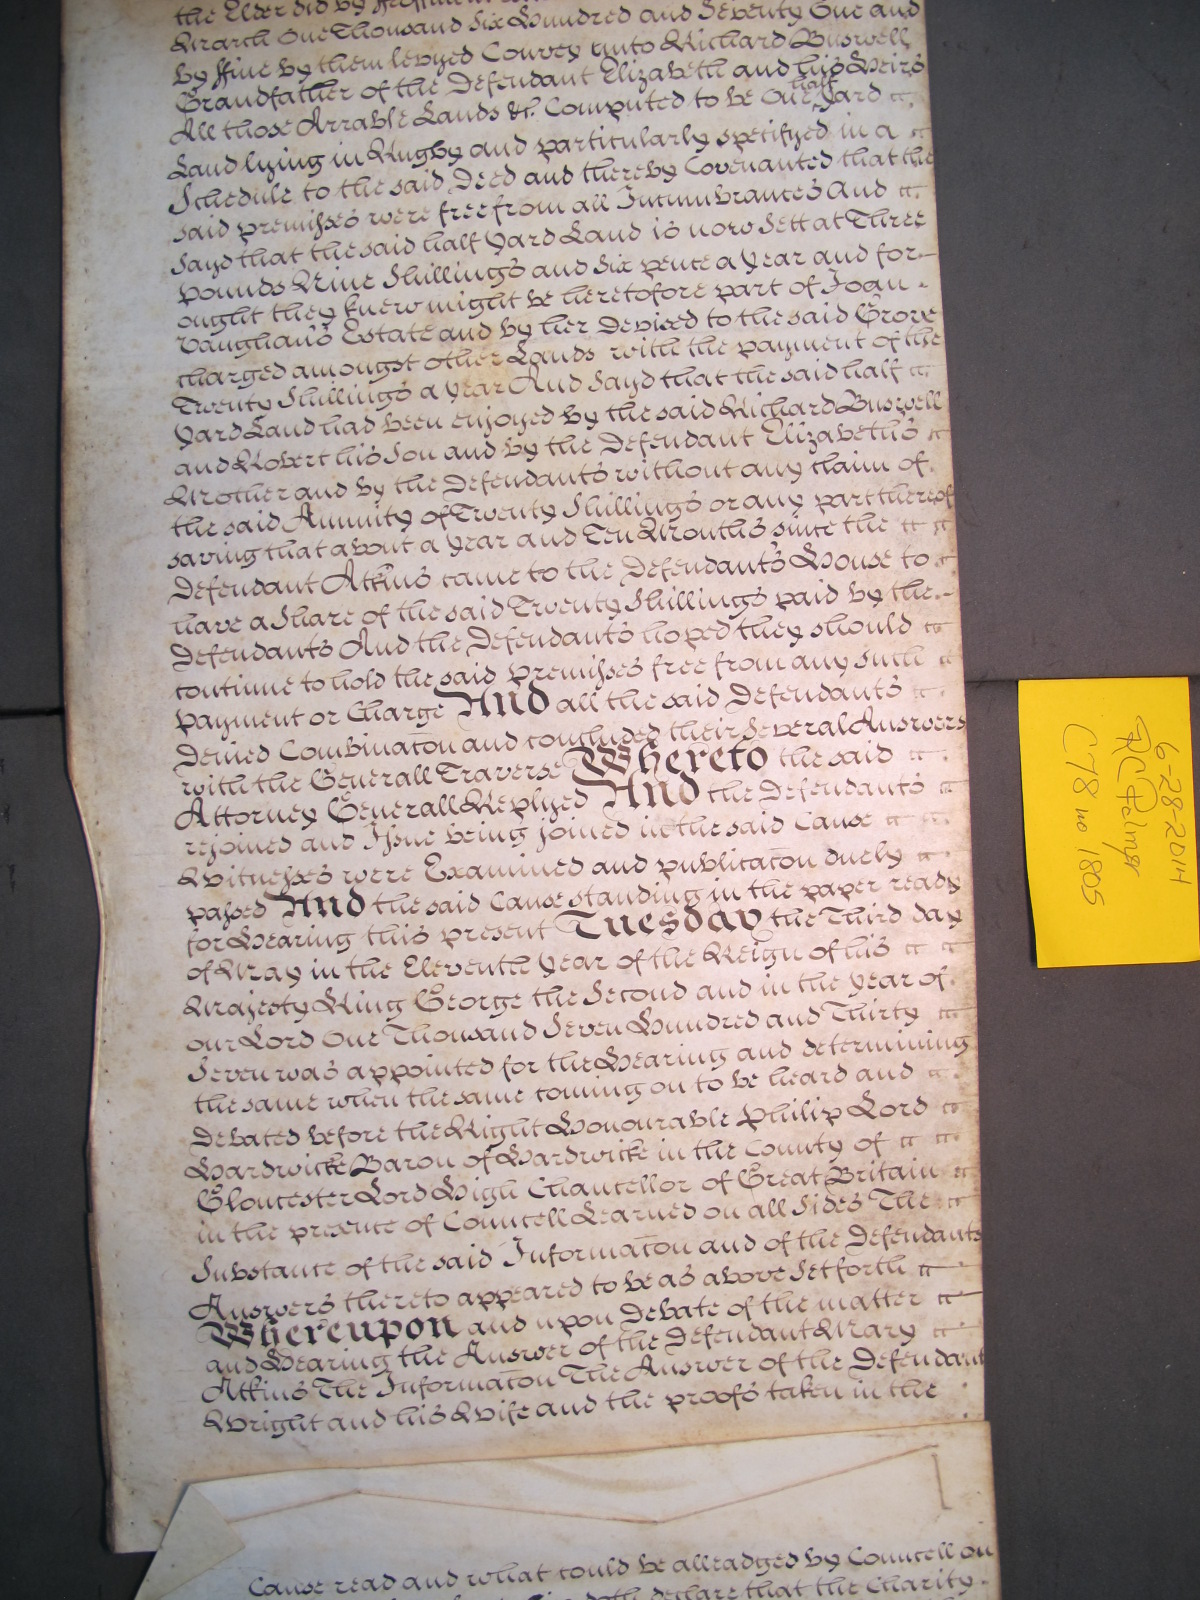 the Elder did by ffeoffment
March One Thousand Six Hundred and Seventy One and
by ffine by them levyed Convey unto Richard Buswell
Grandfather of the Defendant Elizabeth and his Heirs
All those Arrable Lands &c. Computed to be One half Yard
Land lying in Rugby and particularly specifyed in a
Schedule to the said Deed and thereby Covenanted that the
said premisses were free from all Incumbrances And
sayd that the said half Yard Land is now Sett at Three
pounds Nine Shillings and Six pence a Year and for
ought they knew might be heretofore part of Joan
Vaughan's Estate and by her Devised to the said Grove
charged amongst other Lands with the payment of the
Twenty Shillings a Year And Sayd that the said half
Yard Land had been enjoyed by the said Richard Buswell
and Robert his Son and by the Defendant Elizabeth's
Mother and by the Defendants without any claim of
the said Annuity of Twenty Shillings or any part thereof
saving that about a Year and Ten Months since the
Defendant Atkins came to the Defendants House to
have a Share of the said Twenty Shillings paid by the
Defendants And the Defendants hoped they should
continue to hold the said premisses free from any such
payment or Charge And all the said Defendants
Denied Combinacon and concluded their Several Answers
with the Generall Traverse Whereto the said
Attorney Generall Replyed And the Defendants
rejoined and Issue being joined in the said Cause
Witnesses were Examined and publicacon duely
passed And the said Cause standing in the paper ready
for Hearing this present Tuesday the Third day
of May in the Eleventh Year of the Reign of his
Majesty King George the Second and in the year of
our Lord One Thousand Seven Hundred and Thirty
Seven was appointed for the Hearing and determining
the same when the same coming on to be heard and
Debated before the Right Honourable Philip Lord
Hardwicke Baron of Hardwicke in the County of
Gloucester Lord High Chancellor of Great Britain
in the presence of Councell Learned on all Sides The
Substance of the said Informacon and of the Defendants
Answers thereto appeared to be as above Set forth
Whereupon and upon Debate of the matter
and Hearing the Answer of the Defendant Mary
Atkins The Informacon The Answer of the Defendant
Wright and his Wife and the proofs taken in the
Cause read and what could be alleadged by Councell on
doth declare that the Charity
6-28-2014
RC Palmer
C78 no 1805